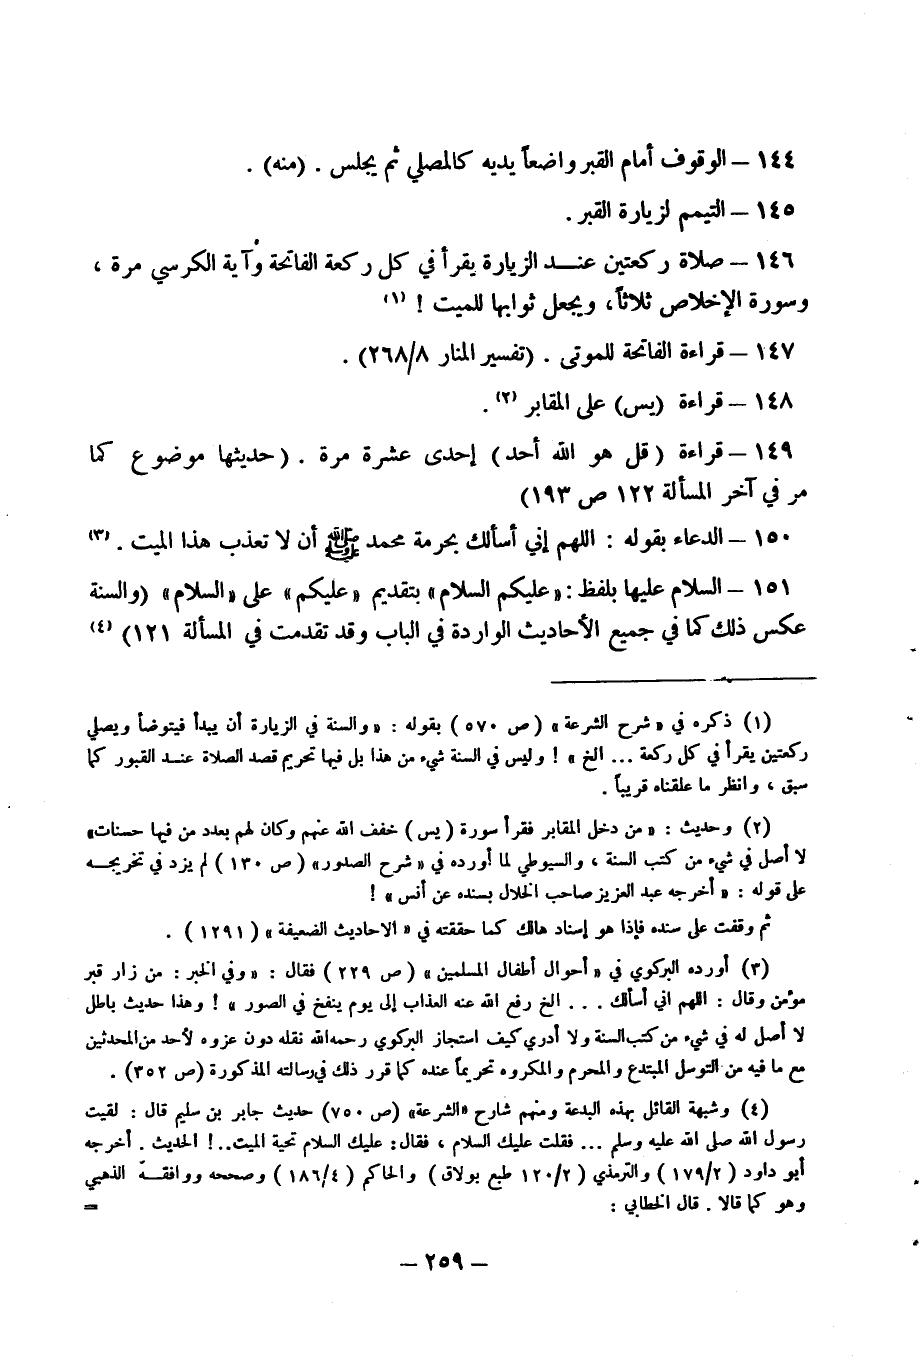 ١٤٤ – الوقوف أمام القبر واضعاً يديه كالمصلي ثم يجلس . (منه) .
١٤٥ – التيمم لزيارة القبر .
١٤٦ – صلاة ركعتين عنـــد الزيارة يقرأ في كل ركعة الفاتحة وآية الكرسي مرة ،
وسورة الإخلاص ثلاثاً ، ويجعل ثوابها للميت ! (١)
١٤٧ – قراءة الفاتحة للموتى . (تفسير المنار ٢٦٨/٨) .
١٤٨ – قراءة (يس) على المقابر (٢) .
١٤٩ – قراءة ( قل هو الله أحد ) إحدى عشرة مرة . ( حديثها موضوع كما
مر في آخر المسألة ١٢٢ ص ١٩٣)
١٥٠ – الدعاء بقوله : اللهم إني أسألك بحرمة محمد ﷺ أن لا تعذب هذا الميت . (٣)
١٥١ – السلام عليها بلفظ : « عليكم السلام » بتقديم « عليكم » على « السلام » (والسنة
عكس ذلك كما في جميع الأحاديث الواردة في الباب وقد تقدمت في المسألة ١٢١) (٤)
(١) ذكره في « شرح الشرعة » ( ص ٥٧٠ ) بقوله : « والسنة في الزيارة أن يبدأ فيتوضأ ويصلي
ركعتين يقرأ في كل ركعة ... الخ » ! وليس في السنة شيء من هذا بل فيها تحريم قصد الصلاة عنـــد القبور كما
سبق ، وانظر ما علقناه قريباً .
(٢) وحديث : « من دخل المقابر فقرأ سورة ( يس ) خفف الله عنهم وكان لهم بعدد من فيها حسنات»
لا أصل في شيء من كتب السنة ، والسيوطي لما أورده في « شرح الصدور » ( ص ١٣٠ ) لم يزد في تخريجـــه
على قوله : « أخرجه عبد العزيز صاحب الخلال بسنده عن أنس » !
ثم وقفت على سنده فإذا هو إسناد هالك كما حققته في « الاحاديث الضعيفة » ( ١٢٩١ ) .
(٣) أورده البركوي في « أحوال أطفال المسلمين » ( ص ٢٢٩ ) فقال : « وفي الخبر : من زار قبر
مؤمن وقال : اللهم اني أسألك . . . الخ رفع الله عنه العذاب إلى يوم ينفخ في الصور » ! وهذا حديث باطل
لا أصل له في شيء من كتب السنة ولا أدري كيف استجاز البركوي رحمه الله نقله دون عزوه لأحد من المحدثين
مع ما فيه من التوسل المبتدع والمحرم والمكروه تحريماً عنده كما قرر ذلك في رسالته المذكورة (ص ٣٥٢) .
(٤) وشبهة القائل بهذه البدعة ومنهم شارح «الشرعة» (ص ٧٥٠) حديث جابر بن سليم قال : لقيت
رسول الله صلى الله عليه وسلم ... فقلت عليك السلام ، فقال : عليك السلام تحية الميت..! الحديث . أخرجه
أبو داود ( ١٧٩/٢ ) والترمذي ( ١٢٠/٢ طبع بولاق ) والحاكم ( ١٨٦/٤ ) وصححه ووافقـــه الذهبي
وهو كما قالا . قال الخطابي : =
– ٢٥٩ –